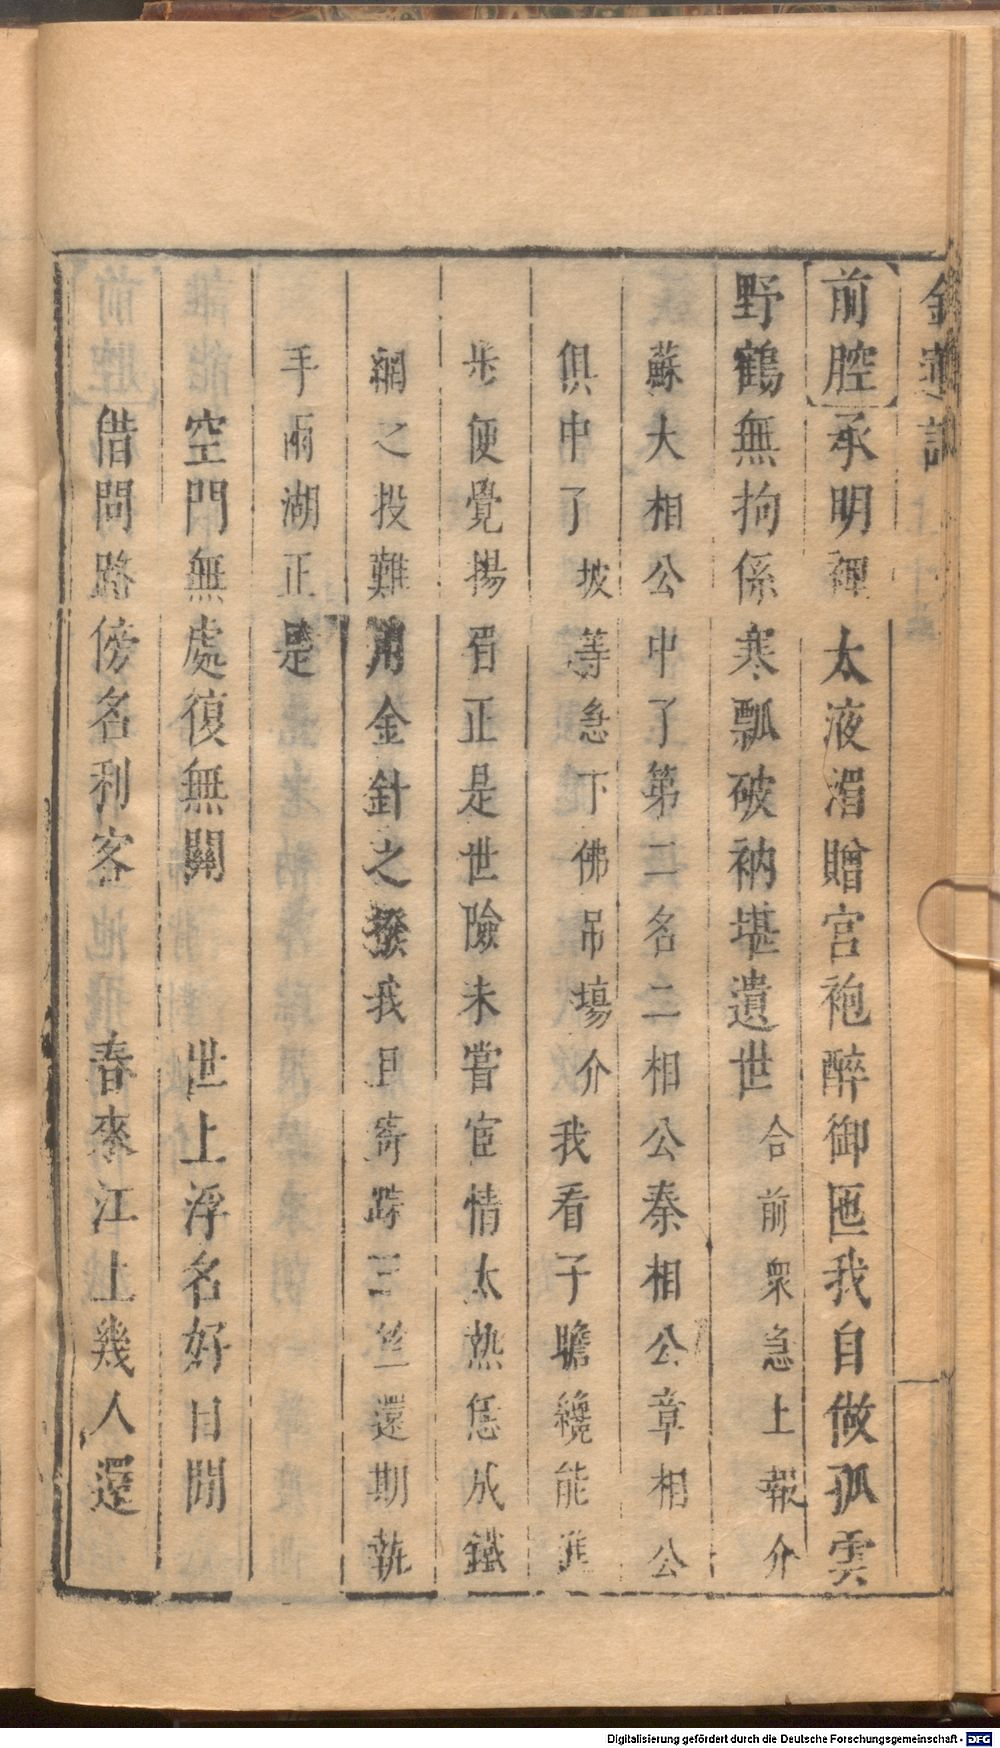 金蓮記
前腔承明禪太液湄贈宮袍醉御匜我自做孤雲
野鶴無拘係寒瓢破衲堪遺世合前衆急上報介
蘇大相公中了第二名二相公秦相公章相公
俱中了坡等急下佛吊塲介我看子瞻纔能進
步便覺揚眉正是世險未嘗宦情太熱恁成鐵
網之投難用金針之撥我且寄踪三竺還期執
手兩湖正是
空門無處復無關　世上浮名好日閒
借問路傍名利客　春來江上幾人還
Digitalisierung gefördert durch die Deutsche Forschungsgemeinschaft - DFG